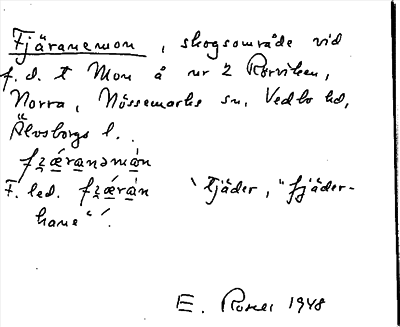 Fjäranemon, skogsområde vid
f. d. t Mon å nr 2 Rörviken,
Norra, Nössemarks sn, Vedbo hd,
Älvsborgs l.
F. led. 'tjäder, "fjäder-
hane"'.
E. 1948